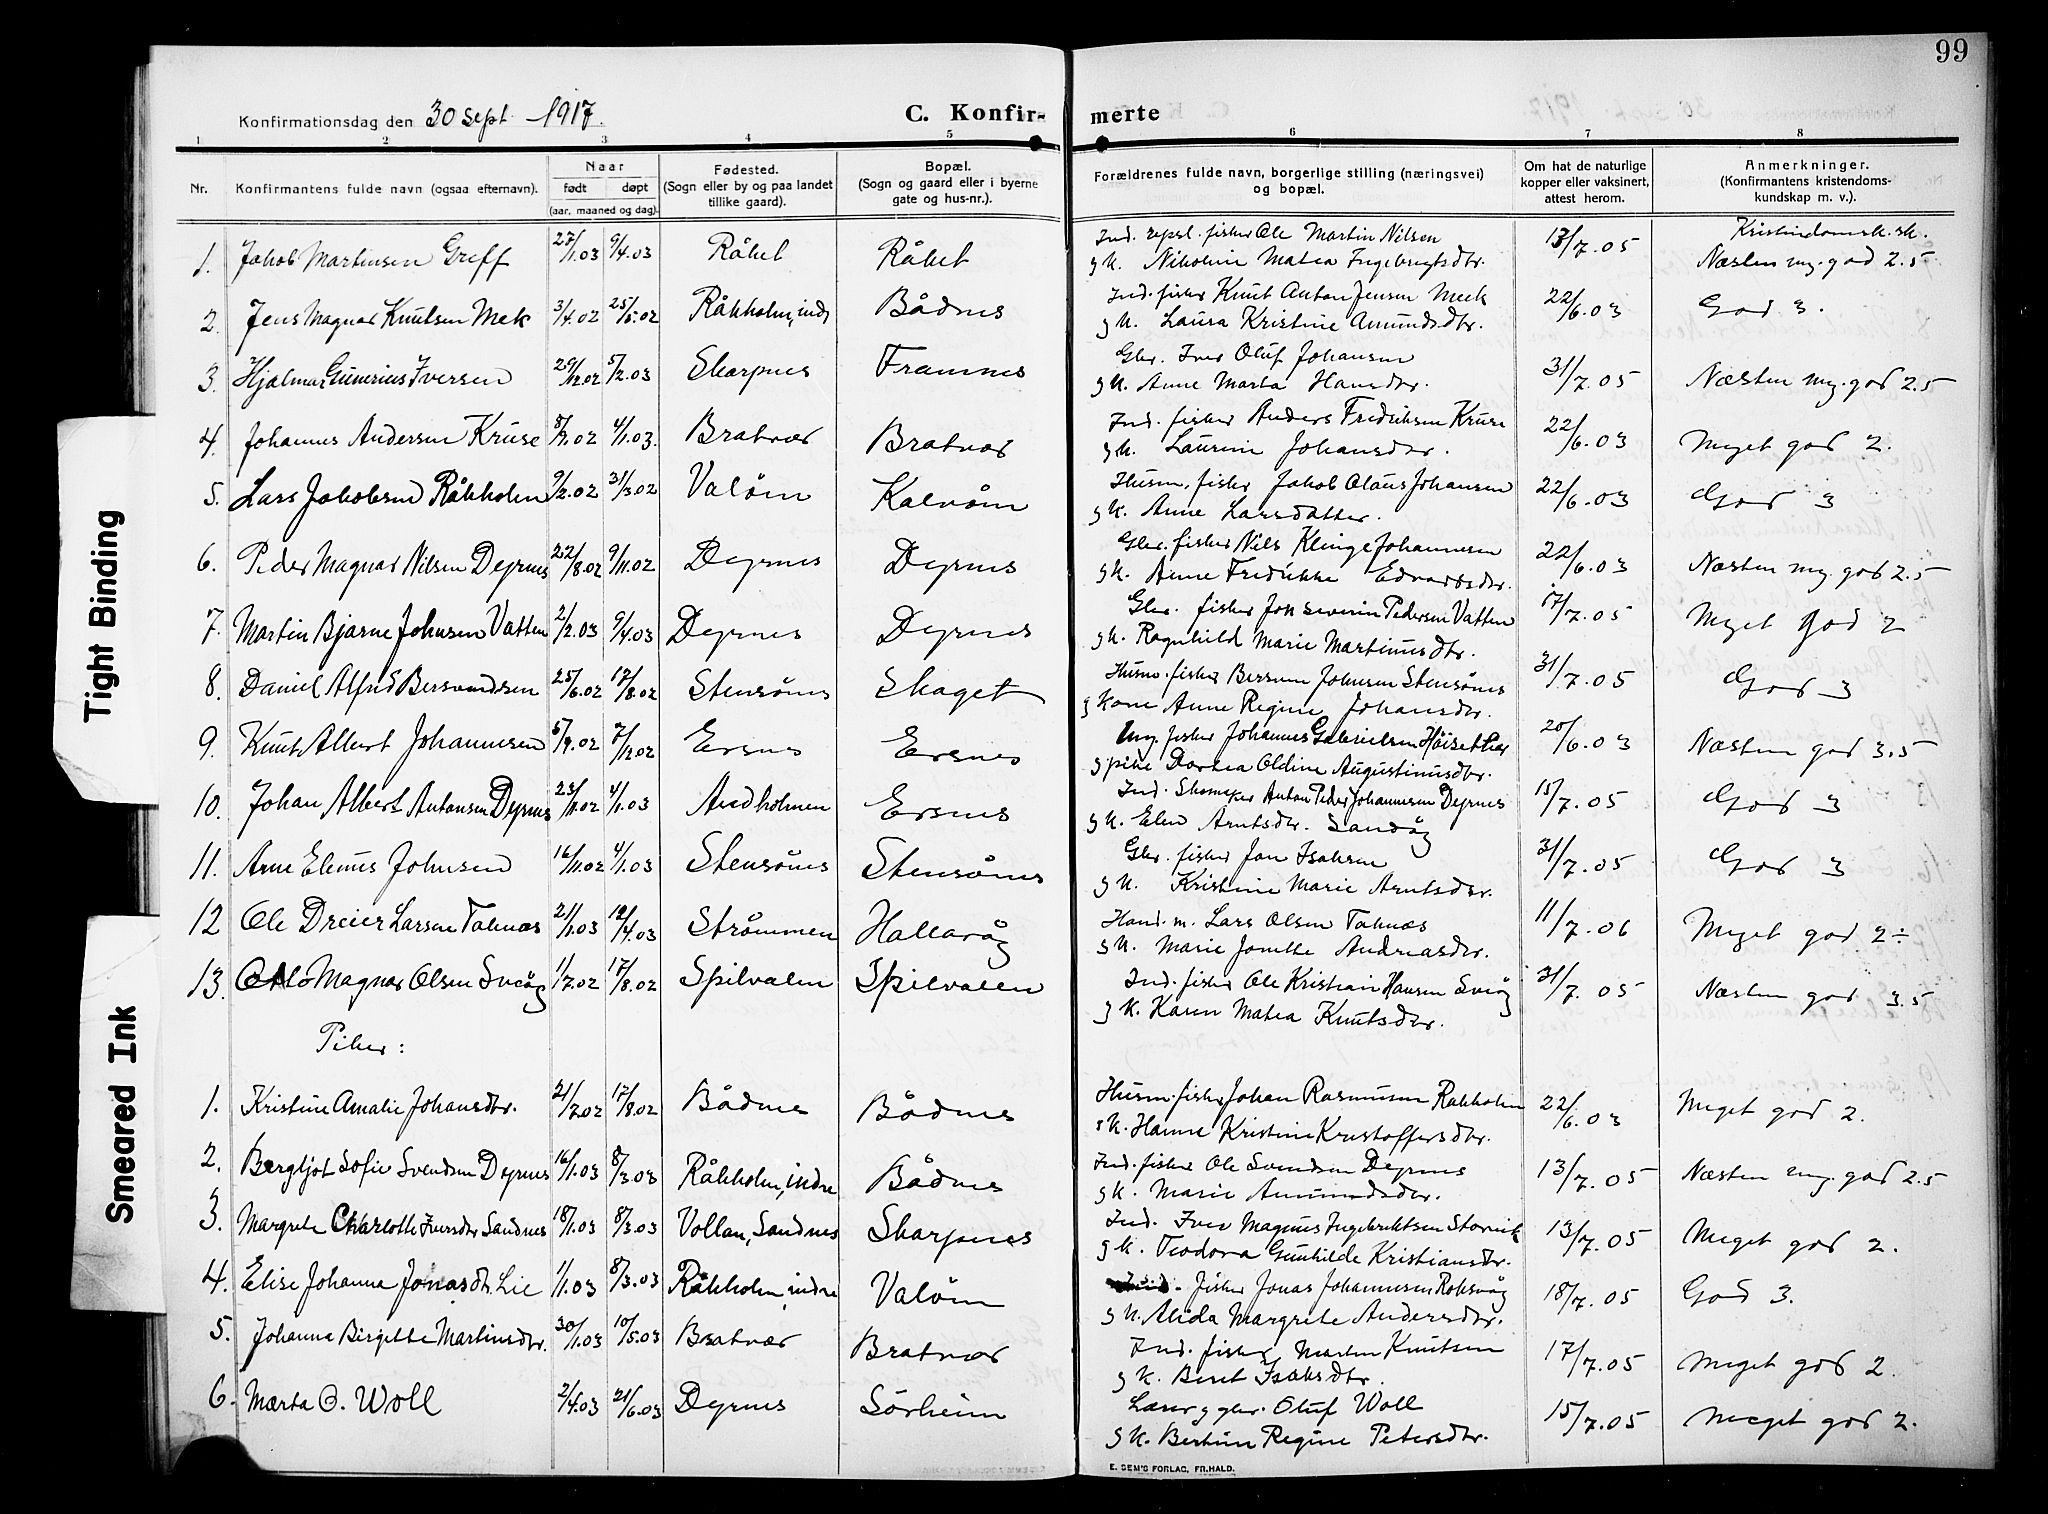 99
Konfirmationsdag den 30 sept. 1917.
C. Konfir-
merte
1 2 3 4 5 6 7 8
Nr. Konfirmantens fulde navn (ogsaa efternavn). Naar født døpt (aar, maaned og dag). Fødested. (Sogn eller by og paa landet tillike gaard). Bopæl. (Sogn og gaard eller i byerne gate og hus-nr.). Forældrenes fulde navn, borgerlige stilling (næringsvei) og bopæl. Om hat de naturlige kopper eller vaksinert, attest herom. Anmerkninger. (Konfirmantens kristendoms-kundskap m. v.).
Kristendomsk. sk.
1. Jakob Martinsen Greff 27/1.03 9/4.03 Råket Råket Ind. fisker Ole Martin Nilsen 13/7.05 Næsten mg. god 2.5
g K. Nikoline Matea Ingebrigtsdtr.
2. Jens Magnar Knutsen Mek 3/4.02 25/5.02 Råkholm, ind. Bådnes Ind. fisker Knut Anton Jensen Meek 22/6.03 God 3.
g K. Laura Kristine Amundsdtr.
3. Hjalmar Gunerius Iversen 29/12.02 5/2.03 Skarpnes Framnes Gbr. Iver Oluf Johansen 31/7.05 Næsten mg. god 2.5
g K. Anne Marta Hansdtr.
4. Johannes Andersen Kruse 8/7.02 4/1.03. Bratvær Bratvær Ind. fisker Anders Fredriksen Kruse 22/6.03 Meget god 2.
g K. Laurine Johansdtr.
5. Lars Jakobsen Råkholm 9/2.02 31/3.02 Valöm Kalvöm Husm. fisker Jakob Olaus Johansen 22/6.03 God 3
g K. Anne Larsdatter.
6. Peder Magnar Nilsen Dyrnes 22/8.02 9/11.02 Dyrnes Dyrnes Gbr. fisker Nils Klinge Johannesen 22/6.03 Næsten mg. god 2.5
g K. Anne Fredrikke Edvardsdtr.
7. Martin Bjarne Johnsen Vatten 2/2.03 9/4.03 Dyrnes Dyrnes Gbr. fisker Jon Severin Pedersen Vatten 17/7.05 Meget god 2
g K. Ragnhild Marie Martinusdtr.
8. Daniel Alfred Bersvendsen 25/6.02 17/8.02 Stensönes Skaget Husm. fisker Johnsen Stensönes 31/7.05 God 3
g Kone Anne Regine Johansdtr.
9. Knut Albert Johannesen 5/9.02 7/12.02 Ersnes Ersnes Ung. fisker Johannes Gabrielsen 20/6.03 Næsten god 3.5
g pike Dortea Oldine Augustinusdtr.
10. Johan Albert Antonsen Dyrnes 23/11.02 4/1.03 Andholmen Ersnes Ind. Skomaker Anton Peder Johannesen Dyrnes 15/7.05 God 3
g K. Elen Arntsdtr. Sandvåg
11. Arne Elenus Johnsen 16/11.02 4/1.03 Stensönes Stensönes Gbr. fisker Jon Isaksen 31/7.05 God 3
g K. Kristine Marie Arntsdtr.
12 Ole Dreier Larsen Taknæs 21/1.03 12/4.03 Strømmen Hallaråg Hand. m. Lars Olsen Taknæs 11/7.06 Meget god 2÷
g K. Marie Jonette Andreasdtr.
13. Magnar Olsen Sveåg 11/7.02 17/8.02 Spilvalen Spilvalen Ind. fisker Ole Kristian Hansen 31/7.05 Næsten god 3.5
g K. Karen Matea Knutsdtr.
Piker:
1. Kristine Amalie Johansdtr. 21/7.02 17/8.02 Bådnes Bådnes Husm. fisker Johan Rasmusen Rakholm 22/6.03 Meget god 2.
g K. Hanne Kristine Kristoffersdtr.
2. Bergljot Sofie Svendsen Dyrnes 16/1.03 8/3.03 Råkholm, indre Bådnes Ind. fisker Ole Svendsen Dyrnes 13/7.05 Næsten mg. god 2.5
g K. Marie Amundsdtr.
3. Margrete Charlotte Iversdtr Sandnes 18/1.03 8/3.03 Vollan, Sandnes Skarpnes Ind. Iver Magnus Ingebriktsen Storvik 13/7.05 Meget god 2.
g K. Teodora Gunhilde Kristiansdtr.
4. Elise Johanna Jonasdtr. Lie 1/1.03 8/3.03 Råkholm, indre Valöm Ind. fisker Jonas Johannesen Roksvåg 18/7.05 God 3.
g K. Alida Margrete Andersdtr.
5. Johanna Birgitte Martinsdtr. 30/1.03 10/5.03 Bratvær Bratvær Ind. fisker Martin Knutsen 17/7.05 Meget god 2
g K. Beret Isaksdtr.
6. Marta O. Woll 2/4.03 21/6.03 Dyrnes Sörheim Lærer g gbr. Oluf Woll 15/7.05 Meget god 2.
g K. Bertine Regine Petersdtr.
E. SEM'S FORLAG, FR.HALD.
Tight Binding
Smeared Ink